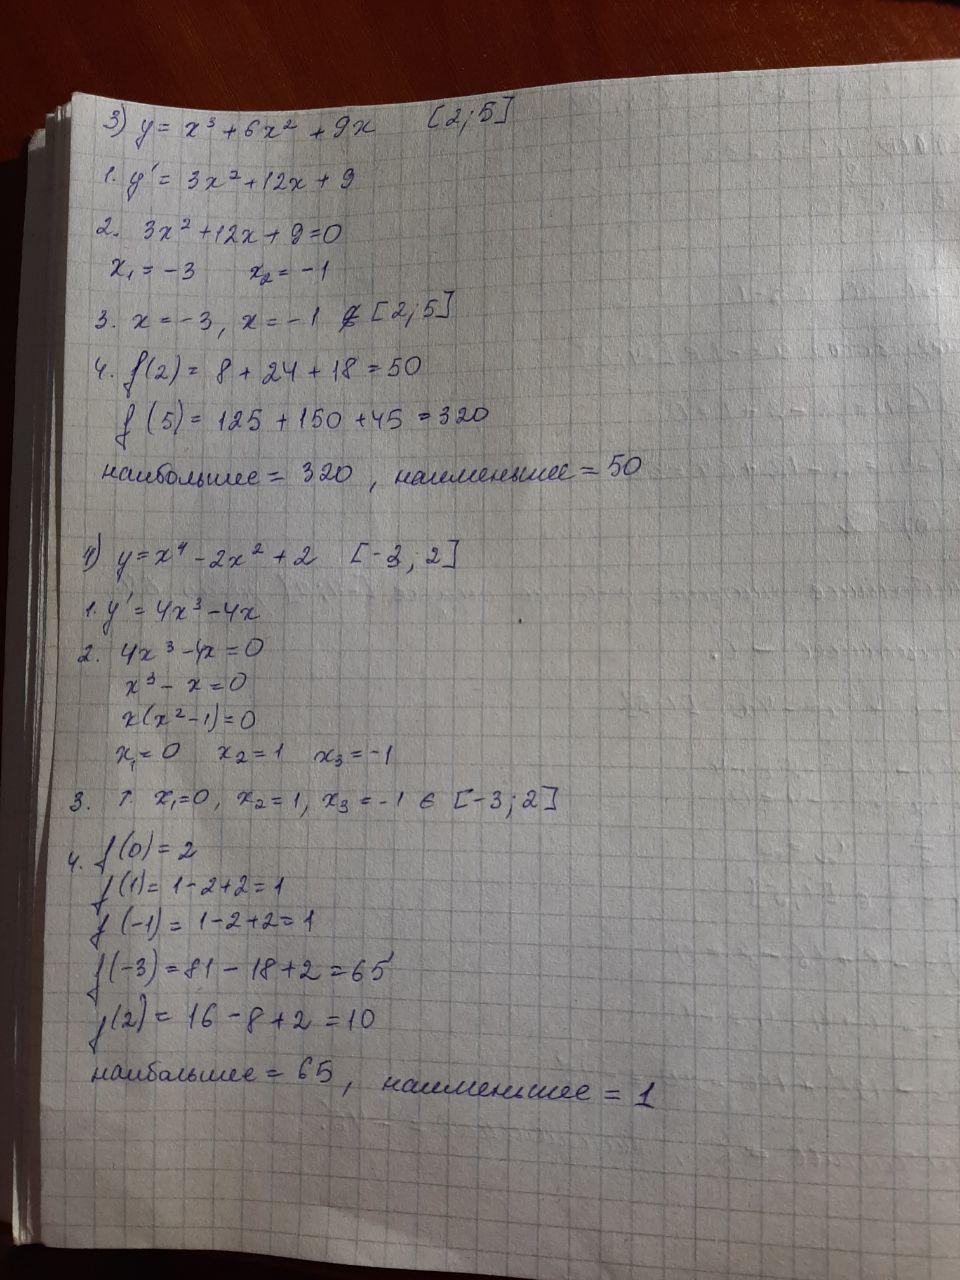 3) y = x³ + 6x² + 9x [2; 5]
1. y' = 3x² + 12x + 9
2. 3x² + 12x + 9 = 0
x₁ = -3 x₂ = -1
3. x = -3, x = -1 ∉ [2; 5]
4. f(2) = 8 + 24 + 18 = 50
f(5) = 125 + 150 + 45 = 320
наибольшее = 320, наименьшее = 50
4) y = x⁴ - 2x² + 2 [-3; 2]
1. y' = 4x³ - 4x
2. 4x³ - 4x = 0
x³ - x = 0
x(x² - 1) = 0
x₁ = 0 x₂ = 1 x₃ = -1
3. т. x₁ = 0, x₂ = 1, x₃ = -1 ∈ [-3; 2]
4. f(0) = 2
f(1) = 1 - 2 + 2 = 1
f(-1) = 1 - 2 + 2 = 1
f(-3) = 81 - 18 + 2 = 65
f(2) = 16 - 8 + 2 = 10
наибольшее = 65, наименьшее = 1